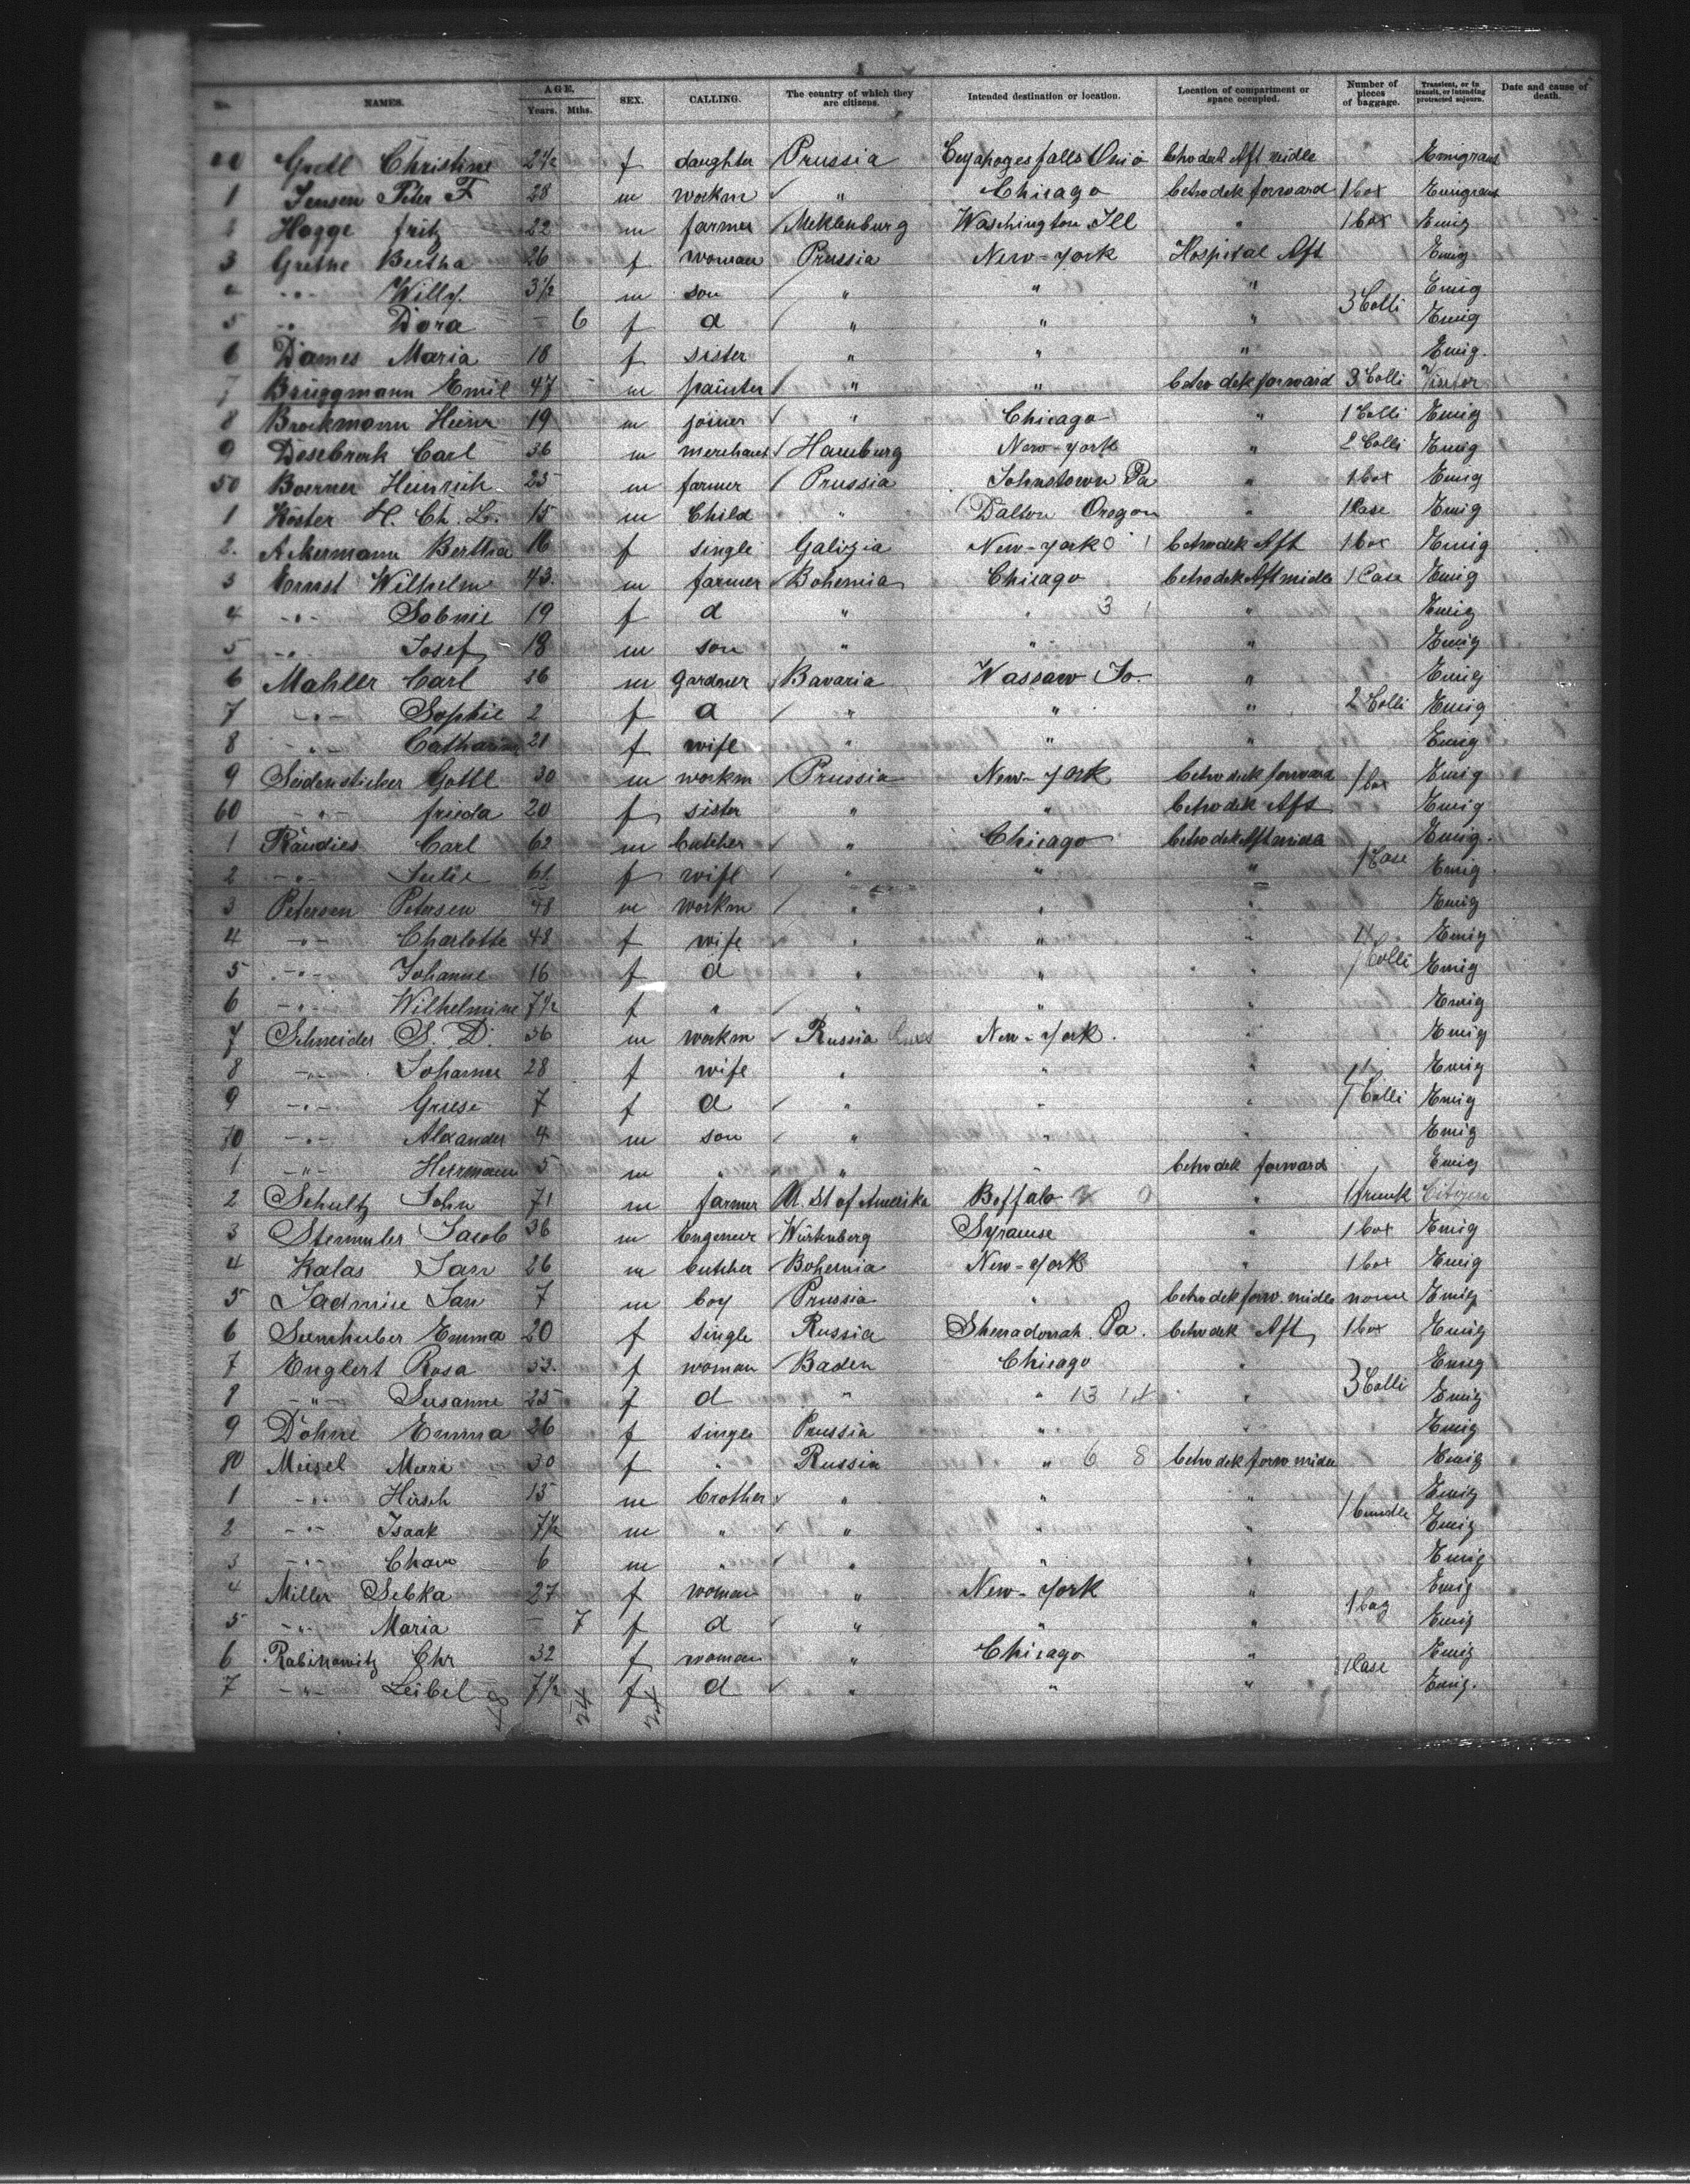 No. NAMES. AGE. Years. Mths. SEX. CALLING. The country of which they are citizens. Intended destination or location. Location of compartment or space occupied. Number of pieces of baggage. Transient, or in transit, or intending protracted sojourn. Date and cause of death.
Christine 2 1/2 f daughter Prussia Cuyahoges falls Ohio betwdek Aft midle Emigrant
1 Jensen Peter F 28 m workm " Chicago betwdek forward 1 box Emigrant
2 Hagge fritz 22 m farmer Meklenburg Waschington Ill " 1 box Emig
3 Grethe Bertha 26 f woman Prussia New-York Hospital Aft Emig
4 -"- Willy 3 1/2 m son " " " Emig
5 -"- Dora - 6 f d " " " 3 Colli Emig
6 Dames Maria 18 f sister " " " Emig.
7 Brüggmann Emil 47 - m painter " " betwdek forward 3 Colli Visitor
8 Brockmann Heinr 19 m joiner " Chicago " 1 Colli Emig
9 Dosebrock Carl 36 m merchant Hamburg New-York " 2 Colli Emig
50 Boerner Heinrich 25 m farmer Prussia Johnstown Pa " 1 box Emig
1 Köster H. Ch. L. 15 m Child " Dalton Oregon " 1 Case Emig
2. Ackermann Bertha 16 f single Galizia New-York 0 1 betwdek Aft 1 box Emig
3 Ernst Wilhelm 43. m farmer Bohemia Chicago betwdek Aft midle 1 Case Emig
4 -"- 19 f d " " 3 1 " Emig
5 -"- Josef 18 m son " " " Emig
6 Mahler Carl m gardner Bavaria Wassaw Io. " Emig
7 -"- Sophie 2 f d " " " 2 Colli Emig
8 -"- Catharine 21 f wife " " " Emig
9 Seidensticker Gottl 30 m workm Prussia New-York betwdek forward 1 box Emig
60 -"- frieda 20 f sister " " betwdek Aft Emig
1 Raudies Carl 62 m butcher " Chicago betwdek Aft midle Emig.
2 -"- Julie 61 f wife " " " 1 Case Emig
3 Petersen Petersen 48 m workm " " " Emig
4 -"- Charlotte 48 f wife " " " Emig
5 -"- Johanne 16 f d " " " Colli Emig
6 -"- Wilhelmine 7 1/2 f " " " " Emig
7 Schneider S. D. 36 m workm Russia New-York. " Emig
8 -"- Johanna 28 f wife " " " Emig
9 -"- 7 f d " " " Colli Emig
70 -"- Alexander 4 m son " " " Emig
1 -"- Herrmann 5 m " " " betwdek forward Emig
2 Schultz John 71 m farmer U. St of Amerika Boffalo 0 " 1 trunk Citizen
3 Stemmler Jacob 36 m Engeneur Würtenberg Syrauuse " 1 box Emig
4 Kalas Jan 26 m butcher Bohemia New-York " 1 box Emig
5 Jan 7 m boy Prussia " betwdek forw. midle none Emig
6 Emma 20 f single Russia Shenadorrah Pa. betwdek Aft 1 box Emig
7 Englert Rosa 52. f woman Baden Chicago " Emig
8 -"- Susanne 25 f d " " 13 14 " 3 Colli Emig
9 Döhne Emma 26 f single Prussia " " Emig
80 Meisel 30 f " Russia " 6 8 betwdek forw midle Emig
1 -"- Hirsch 15 m brother " " " Emig
2 -"- Isaak 7 1/2 m " " " " 1 bundle Emig
3 -"- Chave 6 m " " " " Emig
4 Miller Sebka 27 f woman " New-York " Emig
5 -"- Maria - 7 f d " " " 1 bag Emig
6 Rabinowitz Chr 32 f woman " Chicago " Emig
7 -"- Leibel 7 1/2 f d " " " 1 Case Emig.
48 24 24